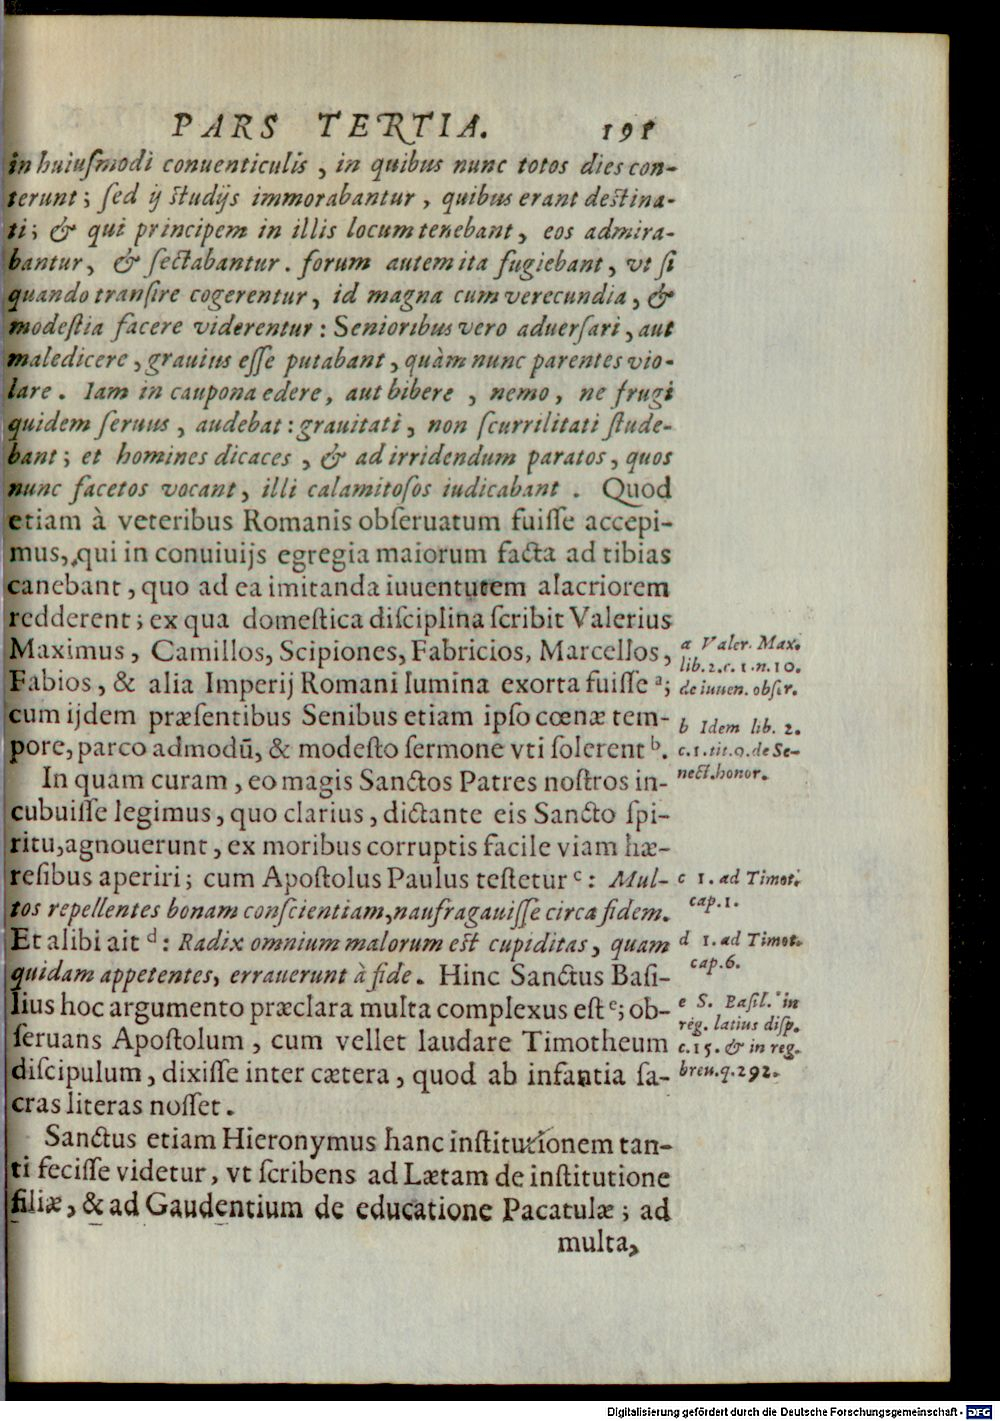 PARS TERTIA. 191
in huiuſmodi conuenticulis, in quibus nunc totos dies con-
terunt; ſed ij ſtudijs immorabantur, quibus erant deſtina-
ti; & qui principem in illis locum tenebant, eos admira-
bantur, & ſectabantur. forum autem ita fugiebant, vt ſi
quando tranſire cogerentur, id magna cum verecundia, &
modeſtia facere viderentur: Senioribus vero aduerſari, aut
maledicere, grauius eſſe putabant, quàm nunc parentes vio-
lare. Iam in caupona edere, aut bibere, nemo, ne frugi
quidem ſeruus, audebat: grauitati, non ſcurrilitati ſtude-
bant; et homines dicaces, & ad irridendum paratos, quos
nunc facetos vocant, illi calamitoſos iudicabant. Quod
etiam à veteribus Romanis obſeruatum fuiſſe accepi-
mus, qui in conuiuijs egregia maiorum facta ad tibias
canebant, quo ad ea imitanda iuuentutem alacriorem
redderent; ex qua domeſtica diſciplina ſcribit Valerius
Maximus, Camillos, Scipiones, Fabricios, Marcellos,
Fabios, & alia Imperij Romani lumina exorta fuiſſe a;
cum ijdem præſentibus Senibus etiam ipſo cœnæ tem-
pore, parco admodū, & modeſto ſermone vti ſolerent b.
a Valer. Max.
lib. 2. c. 1. n. 10.
de iuuen. obſer.
b Idem lib. 2.
c. 1. tit. 9. de Se-
nect. honor.
In quam curam, eo magis Sanctos Patres noſtros in-
cubuiſſe legimus, quo clarius, dictante eis Sancto ſpi-
ritu, agnouerunt, ex moribus corruptis facile viam hæ-
reſibus aperiri; cum Apoſtolus Paulus teſtetur c: Mul-
tos repellentes bonam conſcientiam, naufragauiſſe circa fidem.
Et alibi ait d: Radix omnium malorum eſt cupiditas, quam
quidam appetentes, errauerunt à fide. Hinc Sanctus Baſi-
lius hoc argumento præclara multa complexus eſt e; ob-
ſeruans Apoſtolum, cum vellet laudare Timotheum
diſcipulum, dixiſſe inter cætera, quod ab infantia ſa-
cras literas noſſet.
c 1. ad Timot.
cap. 1.
d 1. ad Timot.
cap. 6.
e S. Baſil. in
reg. latius diſp.
c. 15. & in reg.
breu. q. 292.
Sanctus etiam Hieronymus hanc inſtitutionem tan-
ti feciſſe videtur, vt ſcribens ad Lætam de inſtitutione
filiæ, & ad Gaudentium de educatione Pacatulæ; ad
multa,
Digitalisierung gefördert durch die Deutsche Forschungsgemeinschaft - DFG